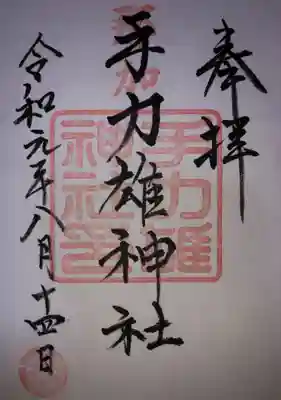 奉拝
手力雄神社
令和元年八月十四日
手力雄
神社